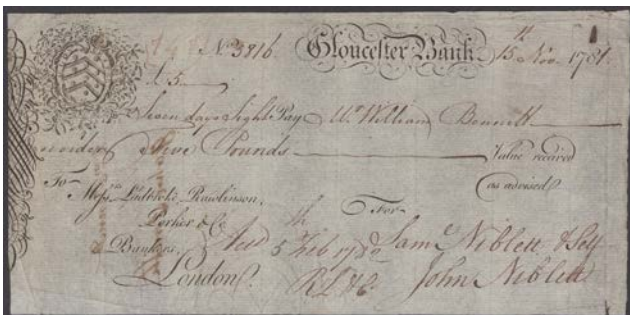 No. 3816. Gloucester Bank 15th Nov. 1781
£5
Seven days Sight Pay Mr. William Bennett
or order Five Pounds Value received
To as advised
Messrs. Ludbroke, Rawlinson, For
Porker & Co.
Bankers, Accd 5th Feb 178 Saml. Niblett & Self
London. R L & Co. John Niblett